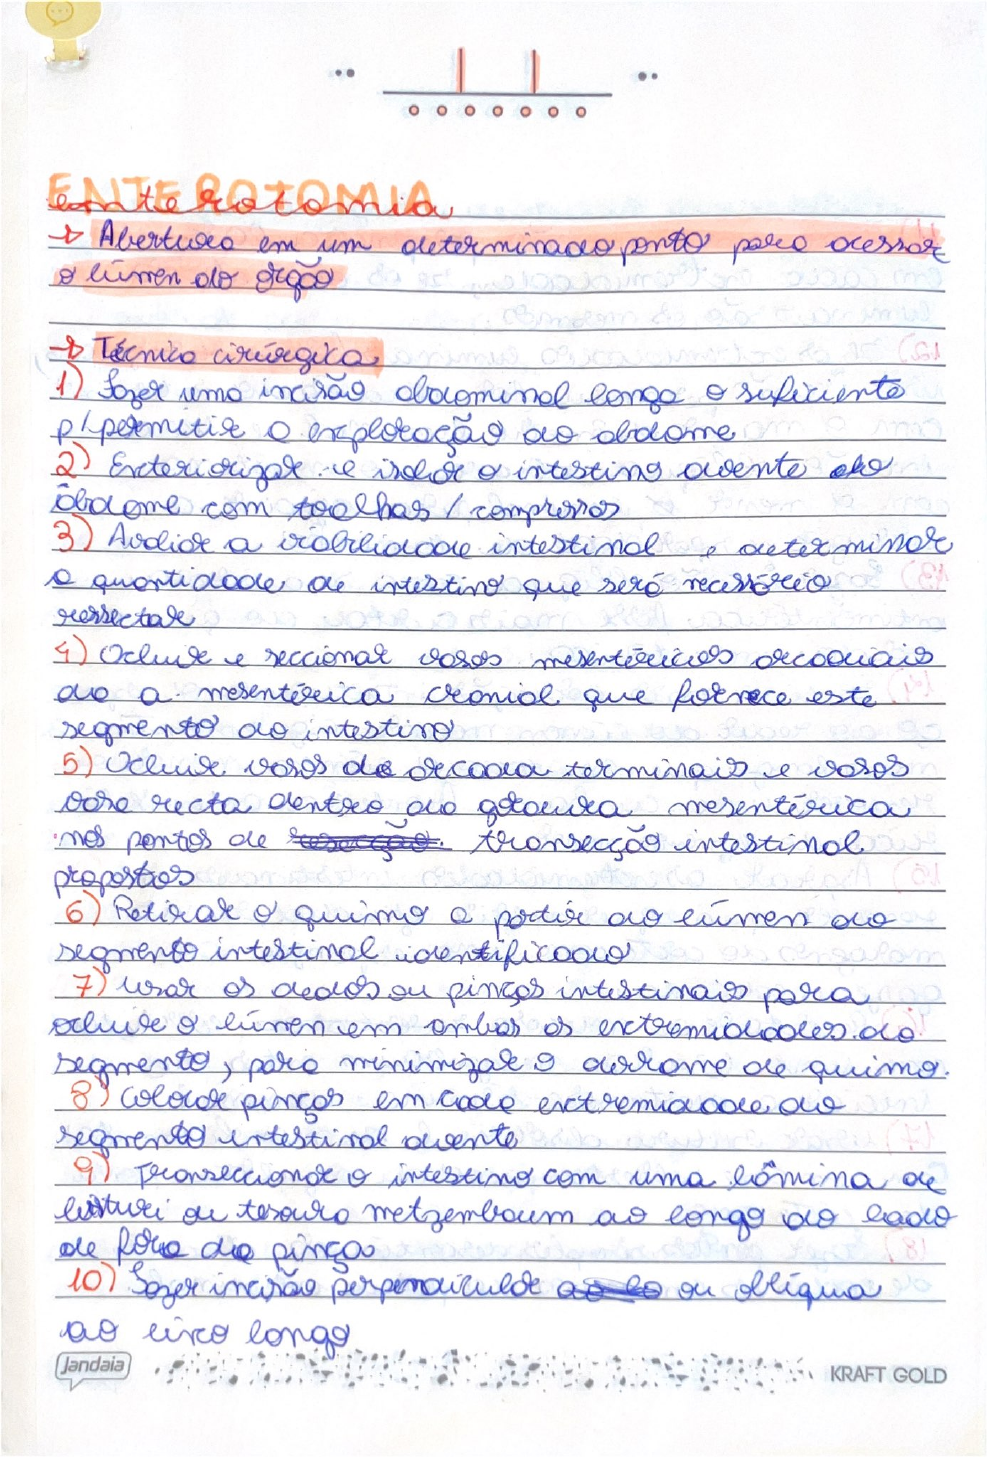 ENTEROTOMIA
enterotomia
→ Abertura em um determinado ponto para acessar
o lúmen do órgão
→ Técnica cirúrgica
1) Fazer uma incisão abdominal longa o suficiente
p/ permitir a exploração do abdome
2) Exteriorizar e isolar o intestino doente do
abdome com toalhas / compressas
3) Avaliar a viabilidade intestinal e determinar
a quantidade de intestino que será necessário
ressectar
4) Ocluir e seccionar vasos mesentéricos arcadiais
da a mesentérica cranial que fornece este
segmento do intestino
5) Ocluir vasos da arcada terminais e vasos
vasa recta dentro da gordura mesentérica
nos pontos de transecção intestinal
propostos
6) Retirar o quimo a partir do lúmen do
segmento intestinal identificado
7) Usar os dedos ou pinças intestinais para
ocluir o lúmen em ambas as extremidades do
segmento, para minimizar o derrame de quimo.
8) Colocar pinças em cada extremidade do
segmento intestinal doente
9) Transeccionar o intestino com uma lâmina de
bisturi ou tesoura metzembaum ao longo do lado
de fora da pinça
10) Fazer incisão perpendicular ou oblíqua
ao eixo longo
Jandaia
KRAFT GOLD